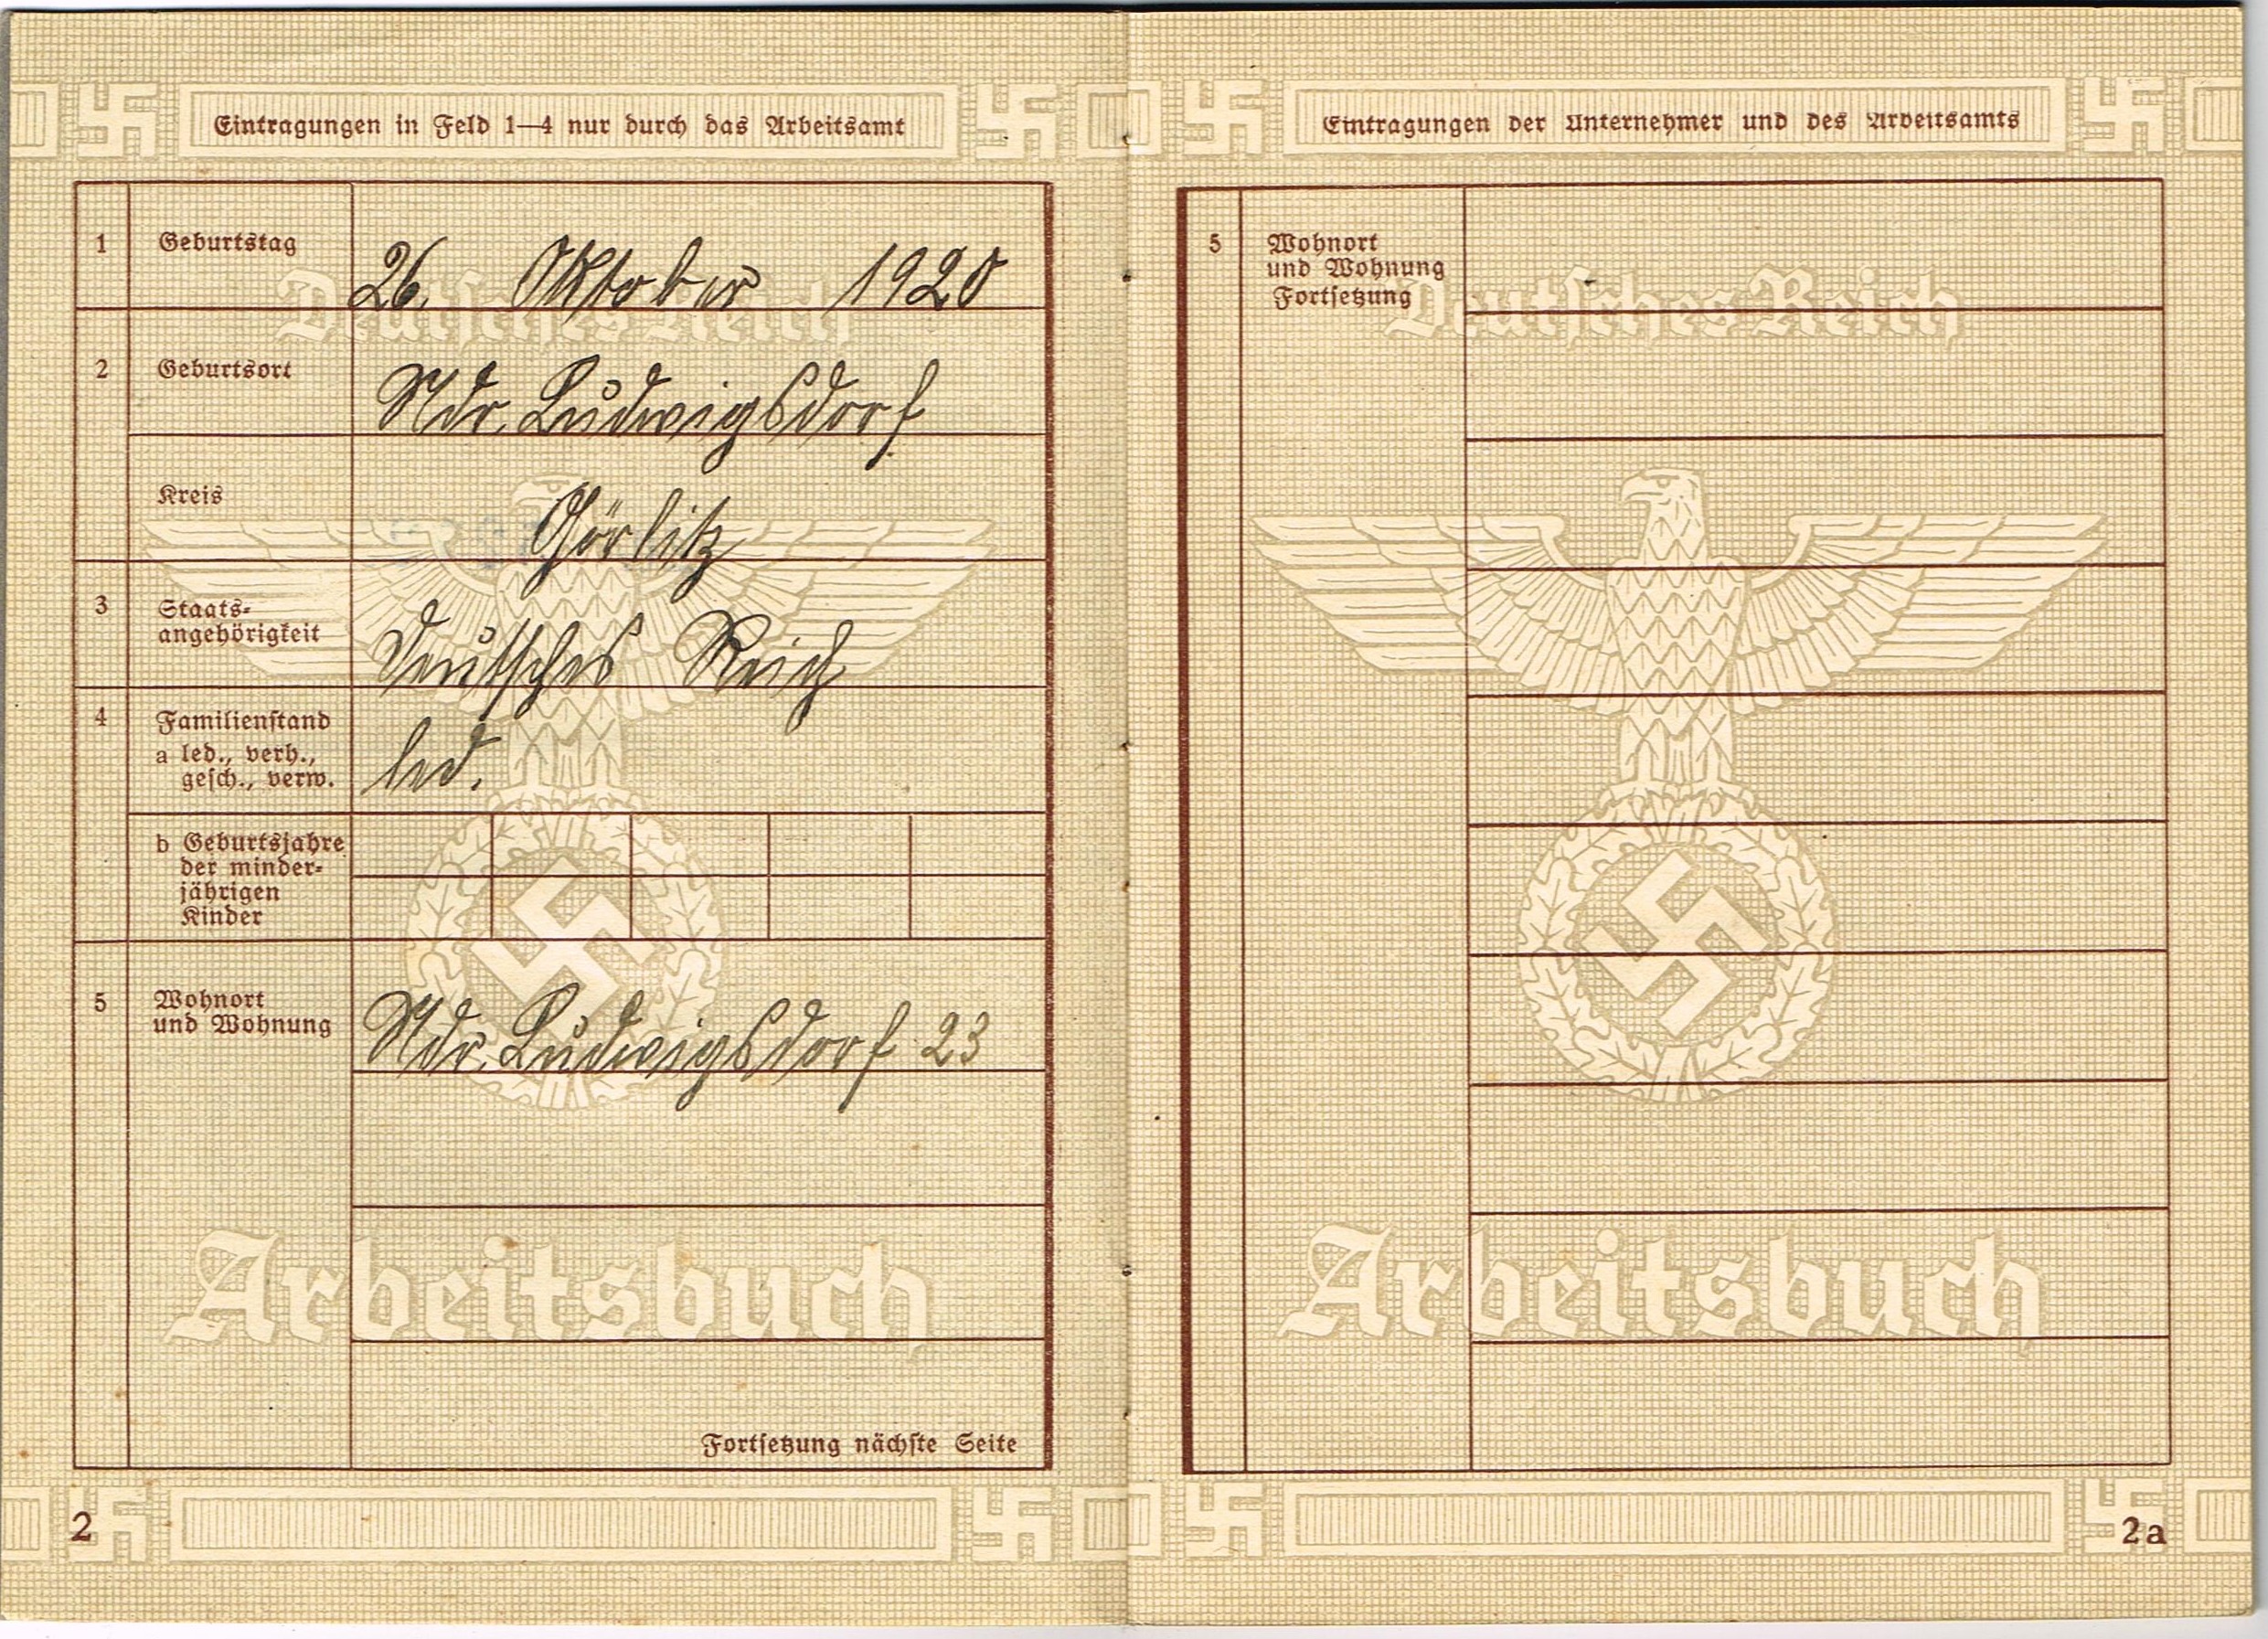 Eintragungen in Feld 1—4 nur durch das Arbeitsamt
Deutsches Reich
1 Geburtstag 26. Oktober 1920
2 Geburtsort Ndr. Ludwigsdorf
Kreis Görlitz
3 Staats-
angehörigkeit Deutsches Reich
4 Familienstand
a led., verh.,
gesch., verw. led.
b Geburtsjahre
der minder-
jährigen
Kinder
5 Wohnort
und Wohnung Ndr. Ludwigsdorf 23
Arbeitsbuch
Fortsetzung nächste Seite
2
Eintragungen der Unternehmer und des Arbeitsamts
5 Wohnort
und Wohnung
Fortsetzung
Deutsches Reich
Arbeitsbuch
2a